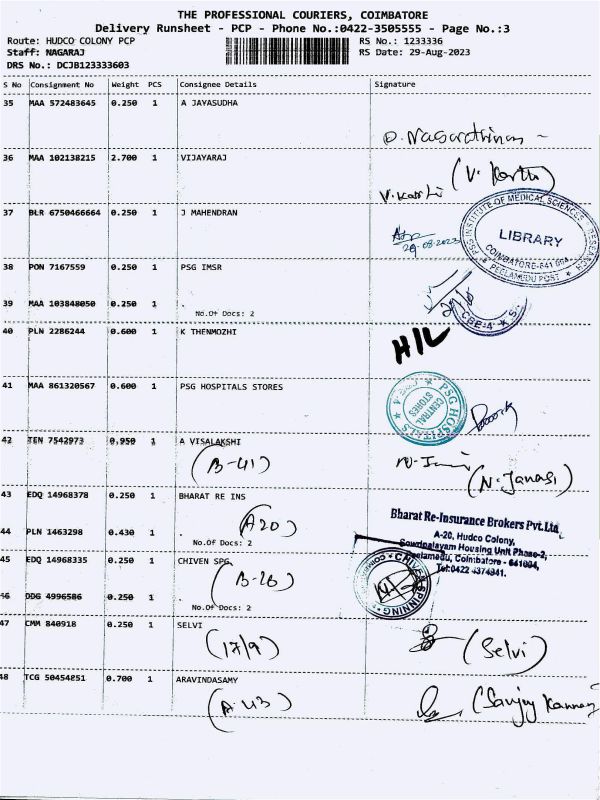 THE PROFESSIONAL COURIERS, COIMBATORE
Delivery Runsheet - PCP - Phone No.:0422-3505555 - Page No.:3
Route: HUDCO COLONY PCP RS No.: 1233336
Staff: NAGARAJ RS Date: 29-Aug-2023
DRS No.: DCJB123333603
S No Consignment No Weight PCS Consignee Details Signature
35 MAA 572483645 0.250 1 A JAYASUDHA
36 MAA 102138215 2.700 1 VIJAYARAJ
(V. Karthi)
V. Karthi
37 BLR 6750466664 0.250 1 J MAHENDRAN
29.08.2023
PSG INSTITUTE OF MEDICAL SCIENCES RESEARCH
LIBRARY
COIMBATORE-641 004
PEELAMEDU POST
38 PON 7167559 0.250 1 PSG IMSR
39 MAA 103848050 0.250 1
No.Of Docs: 2
29/8
CBE-4
40 PLN 2286244 0.600 1 K THENMOZHI
H/L
41 MAA 861320567 0.600 1 PSG HOSPITALS STORES
PSG HOSPITALS
CENTRAL STORES
CBE-4
42 TEN 7542973 0.950 1 A VISALAKSHI
(B-41)
(N. Janasi)
43 EDQ 14968378 0.250 1 BHARAT RE INS
(A20)
44 PLN 1463298 0.430 1
No.Of Docs: 2
Bharat Re-Insurance Brokers Pvt.Ltd
A-20, Hudco Colony,
Sowripalayam Housing Unit Phase-2,
Peelamedu, Coimbatore - 641004,
Tel:0422 4374341.
45 EDQ 14968335 0.250 1 CHIVEN SPG
(B-26)
46 DDG 4996586 0.250 1
No.Of Docs: 2
CHIVEN SPINNING
47 CMM 840918 0.250 1 SELVI
(17/9)
(Selvi)
48 TCG 50454851 0.700 1 ARAVINDASAMY
(A-43)
(Sanjay Kannan)